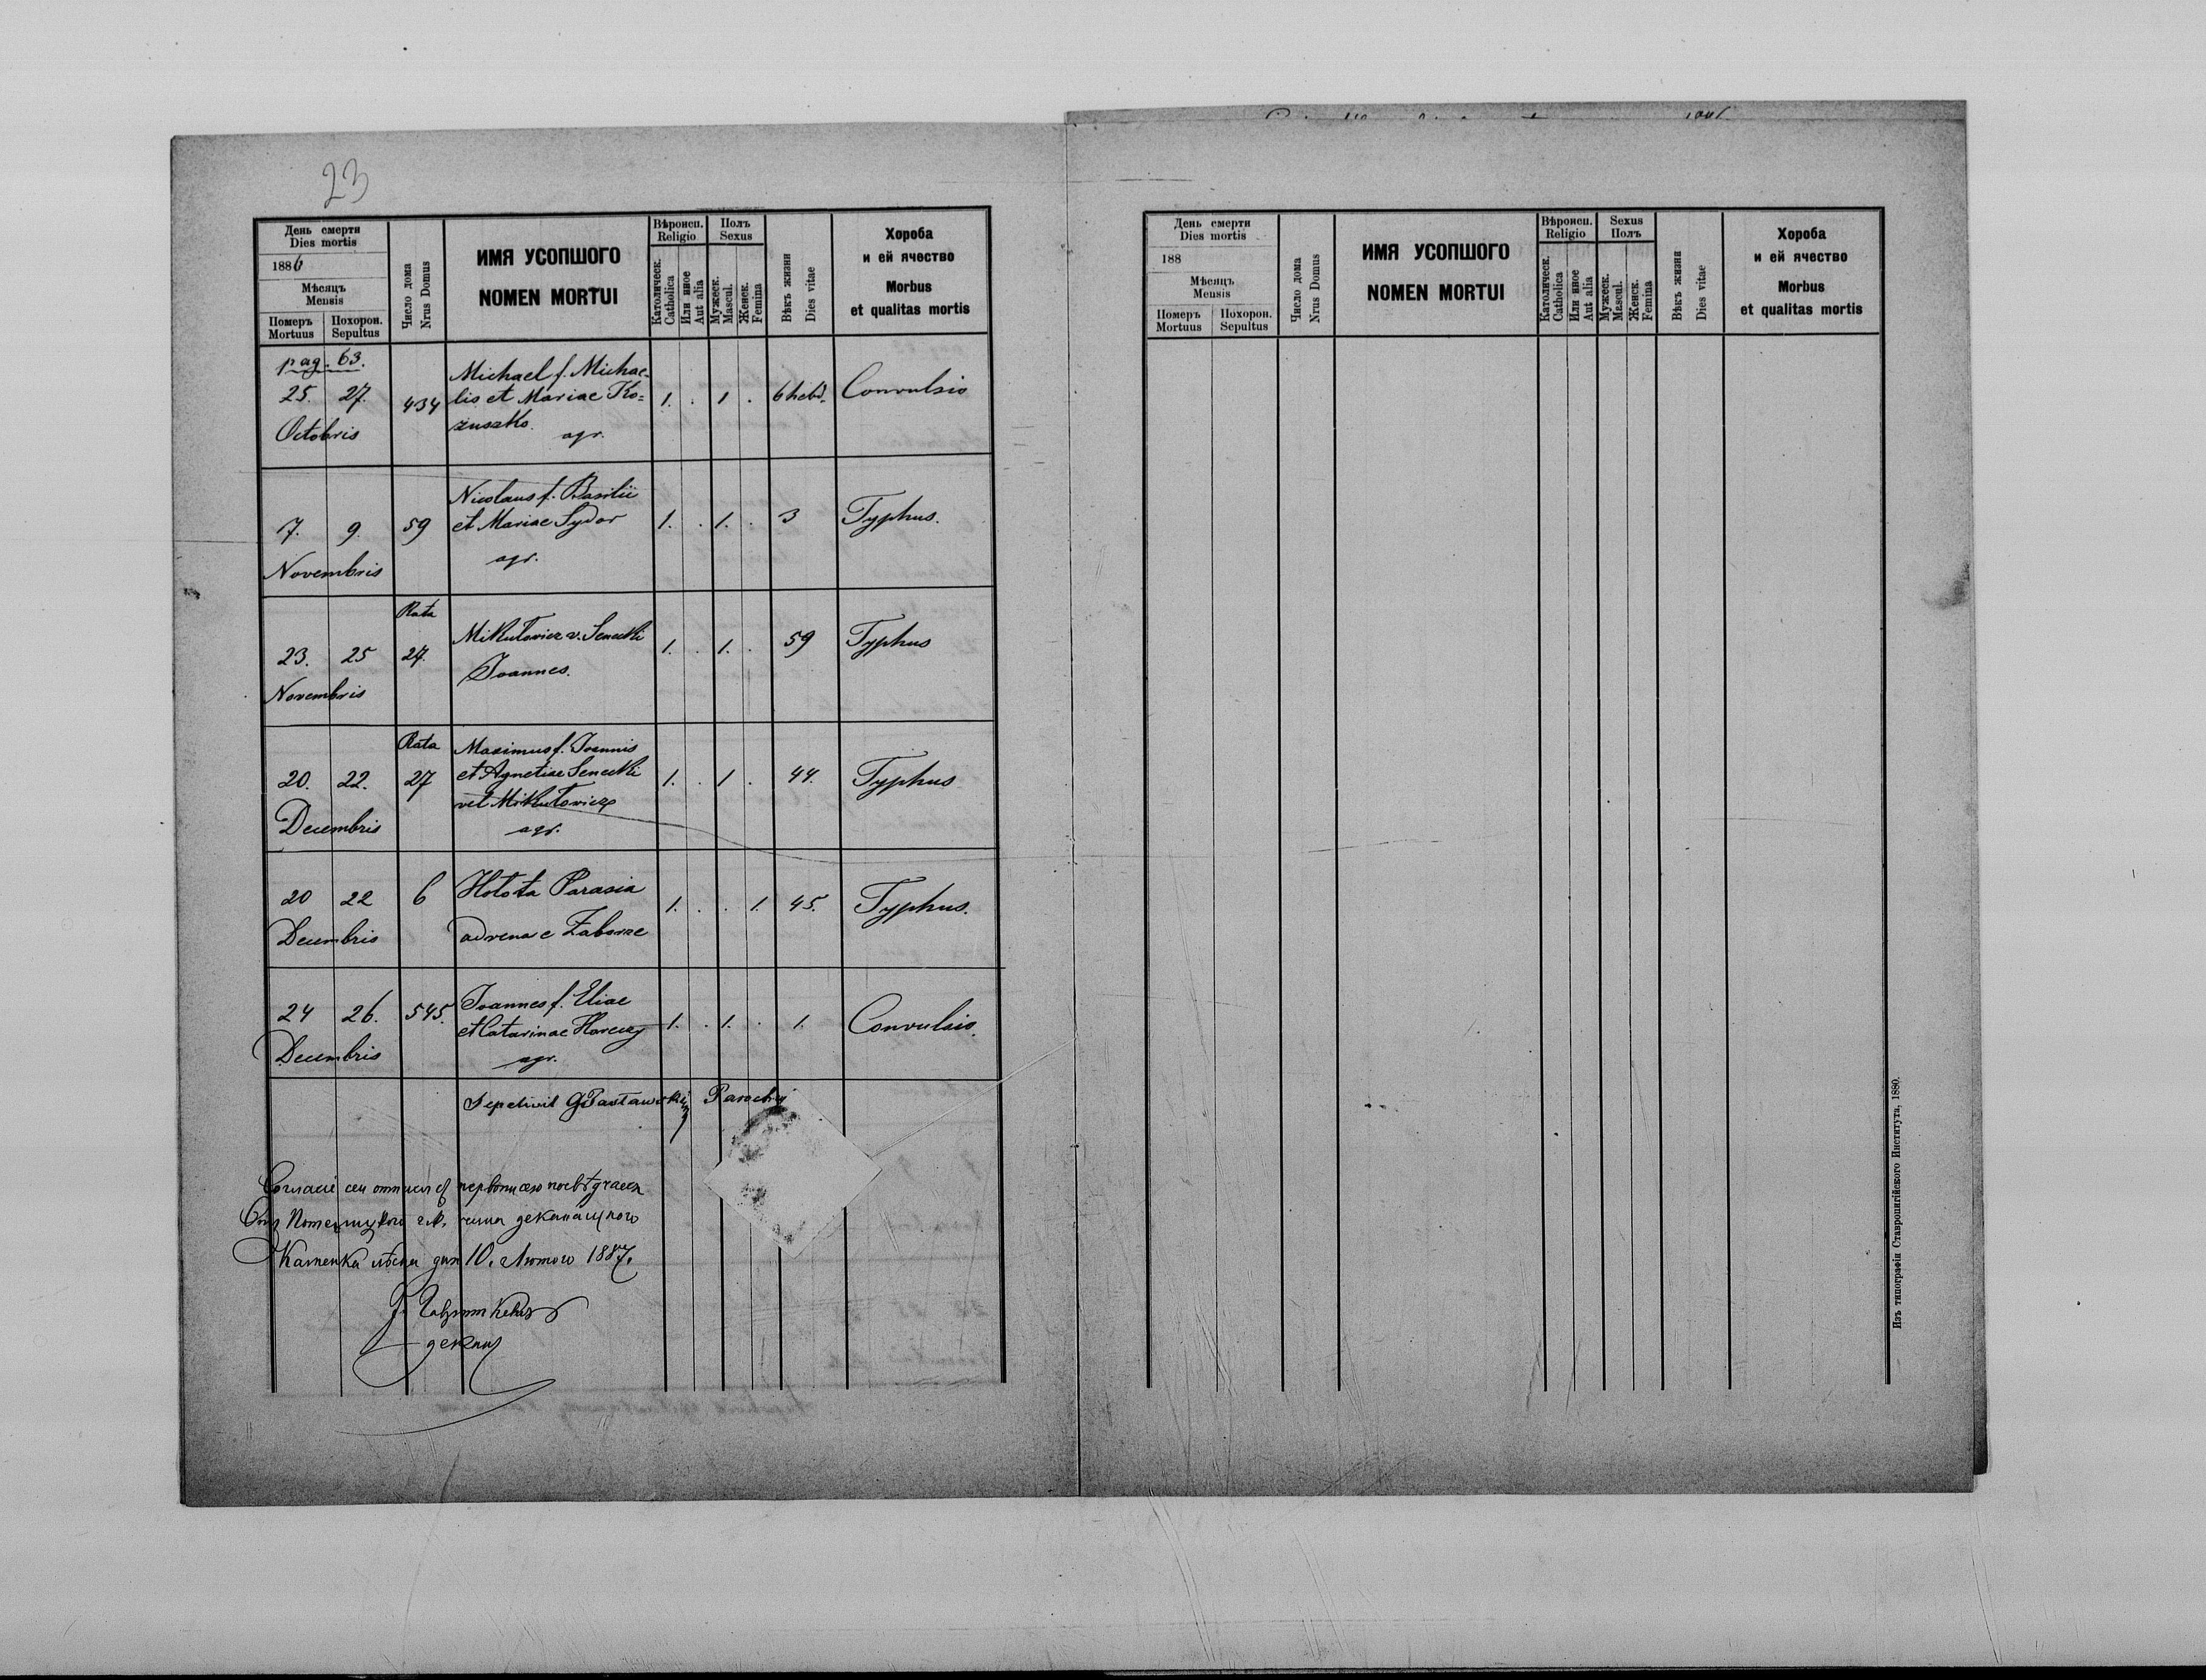 23
День смерти
Dies mortis
1886
Мѣсяцъ
Mensis
Померъ
Mortuus
Похорон.
Sepultus
Число дома
Nrus Domus
ИМЯ УСОПШОГО
NOMEN MORTUI
Вѣроисп.
Religio
Католическ.
Catholica
Или иное
Aut alia
Полъ
Sexus
Мужеск.
Mascul.
Женск.
Femina
Вѣкъ жизни
Dies vitae
Хороба
и ей ячество
Morbus
et qualitas mortis
pag. 63.
25. 27. Octobris
434
Michael f. Michae-
lis et Mariae Ko=
zuszko.
agr.
1. . 1 . 6 hebd. Convulsio
7. 9. Novembris
59
Nicolaus f. Basilii
et Mariae Sydor
agr.
1. . 1. . 3 Typhus.
23. 25 Novembris
Rata
27.
Mikułowicz v. Senecki
Joannes.
1. . 1. . 59 Typhus
20. 22. Decembris
Rata
27
Maximus f. Joannis
et Agnetiae Senecki
vel Mikułowicz
agr.
1. . 1 . 44. Typhus
20 22 Decembris
6
Hołota Parasia
advena e Zaborze
1. . . 1. 45. Typhus.
24 26. Decembris
545.
Joannes f. Eliae
et Catarinae Horeczy
agr.
1. . 1. . 1. Convulsio.
Sepelivit Parochus
декана
Каменка дня 10. Лютого 1887.
декан
День смерти
Dies mortis
188
Мѣсяцъ
Mensis
Померъ
Mortuus
Похорон.
Sepultus
Число дома
Nrus Domus
ИМЯ УСОПШОГО
NOMEN MORTUI
Вѣроисп.
Religio
Католическ.
Catholica
Или иное
Aut alia
Sexus
Полъ
Мужеск.
Mascul.
Женск.
Femina
Вѣкъ жизни
Dies vitae
Хороба
и ей ячество
Morbus
et qualitas mortis
Изъ типографіи Ставропигійского Института, 1880.